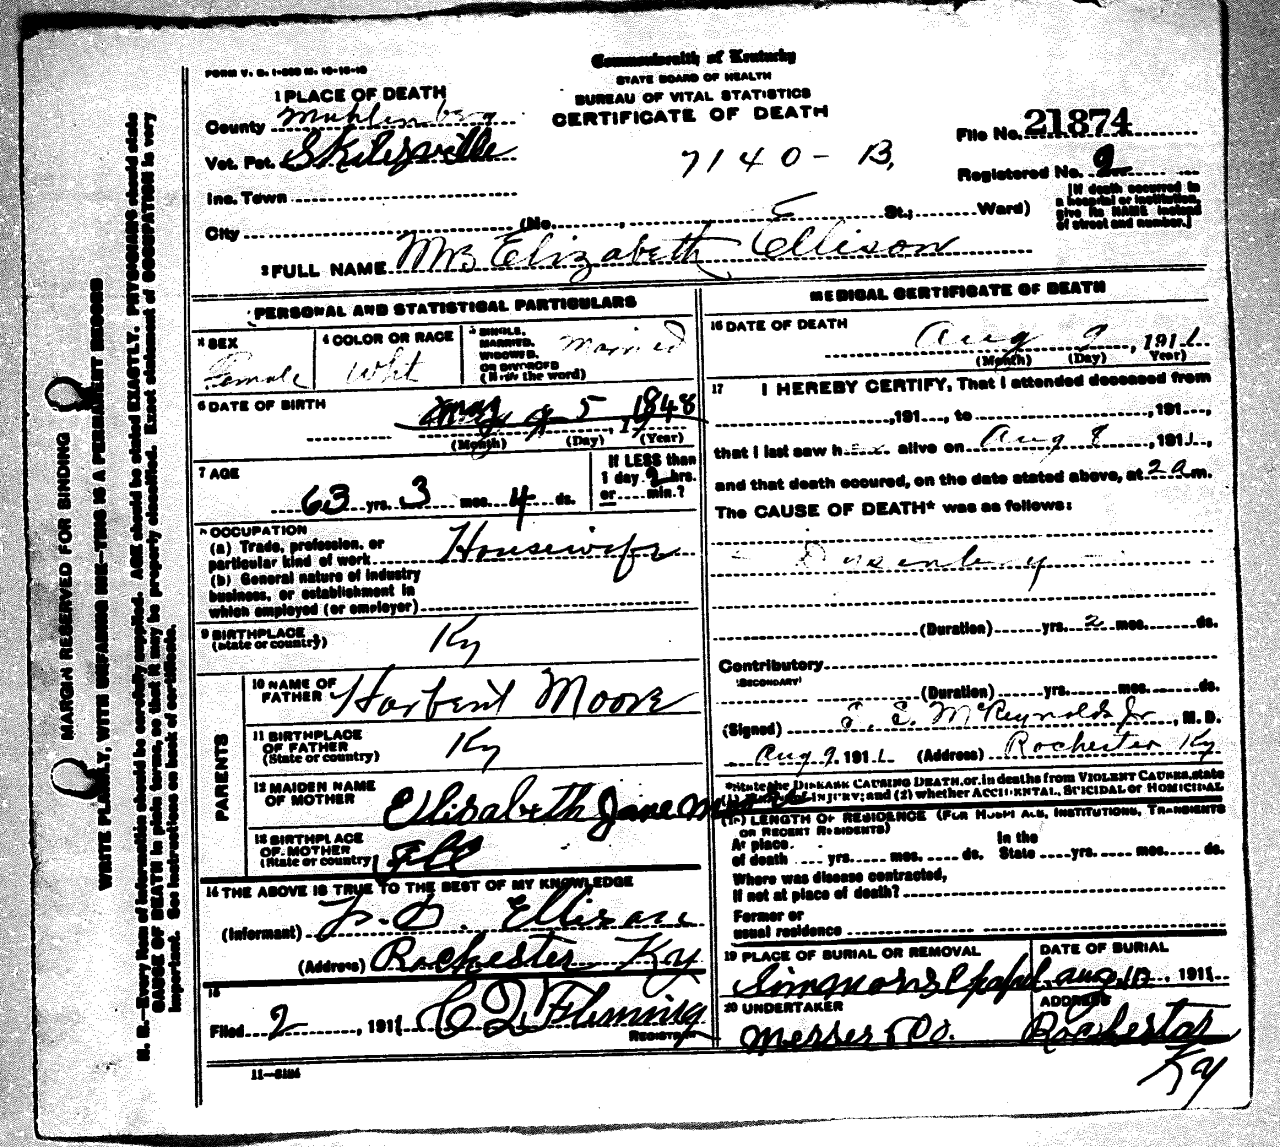 Commonwealth of Kentucky
STATE BOARD OF HEALTH
BUREAU OF VITAL STATISTICS
CERTIFICATE OF DEATH
FORM V. S. 1
1 PLACE OF DEATH
County Muhlenberg
Vot. Pct. Skilesville
Inc. Town
City (No. St.; Ward)
7140-B,
File No. 21874
Registered No. 2
[If death occurred in
a hospital or institution,
give its NAME instead
of street and number.]
2 FULL NAME Mrs Elizabeth Ellison
PERSONAL AND STATISTICAL PARTICULARS
3 SEX
Female
4 COLOR OR RACE
Wht
5 SINGLE,
MARRIED,
WIDOWED,
OR DIVORCED
(Write the word)
Married
6 DATE OF BIRTH
May 5, 1848
(Month) (Day) (Year)
7 AGE
63 yrs. 3 mos. 4 ds.
If LESS than
1 day hrs.
or min.?
8 OCCUPATION
(a) Trade, profession, or
particular kind of work Housewife
(b) General nature of industry
business, or establishment in
which employed (or employer)
9 BIRTHPLACE
(State or country)
Ky
PARENTS
10 NAME OF
FATHER Harbert Moore
11 BIRTHPLACE
OF FATHER
(State or country)
Ky
12 MAIDEN NAME
OF MOTHER
Ellisabeth Jane
13 BIRTHPLACE
OF MOTHER
(State or country)
14 THE ABOVE IS TRUE TO THE BEST OF MY KNOWLEDGE
(Informant) Ellison
(Address) Rochester Ky
15
Filed 2, 191 Fleming
REGISTRAR
11—3184
MEDICAL CERTIFICATE OF DEATH
16 DATE OF DEATH
Aug 9, 1911
(Month) (Day) (Year)
17 I HEREBY CERTIFY, That I attended deceased from
, 191, to , 191,
that I last saw her alive on Aug 8, 1911,
and that death occured, on the date stated above, at 2 a m.
The CAUSE OF DEATH* was as follows:
Dysentery
(Duration) yrs. 2 mos. ds.
Contributory
(SECONDARY)
(Duration) yrs. mos. ds.
(Signed) McReynolds Jr, M. D.
Aug 9 1911 (Address) Rochester Ky
*State the DISEASE CAUSING DEATH, or, in deaths from VIOLENT CAUSES, state
INJURY; and (2) whether ACCIDENTAL, SUICIDAL or HOMICIDAL
LENGTH OF RESIDENCE (FOR HOSPITALS, INSTITUTIONS, TRANSIENTS
OR RECENT RESIDENTS)
At place In the
of death yrs. mos. ds. State yrs. mos. ds.
Where was disease contracted,
if not at place of death?
Former or
usual residence
19 PLACE OF BURIAL OR REMOVAL
Simmons Chapel
DATE OF BURIAL
Aug 10, 1911
20 UNDERTAKER
Messer & Co.
ADDRESS
Rochester
Ky
MARGIN RESERVED FOR BINDING
WRITE PLAINLY, WITH UNFADING INK—THIS IS A PERMANENT RECORD
N. B.—Every item of information should be carefully supplied. AGE should be stated EXACTLY. PHYSICIANS should state
CAUSE OF DEATH in plain terms, so that it may be properly classified. Exact statement of OCCUPATION is very
important. See instructions on back of certificate.